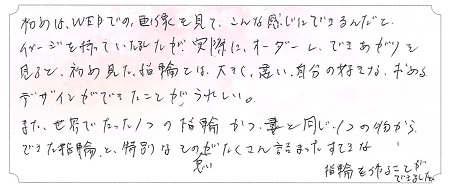 初めは、WEBでの、画像を見て、こんな感じにできるんだと、
イメージを持っていましたが、実際に、オーダーし、できあがりを
見ると、初め見た、指輪とは、大きく、違い、自分の好きな、求める
デザインができたことが、うれしい。
また、世界でたった1つの指輪かつ、妻と同じ、1つの物から
できた指輪、と、特別な思いがたくさん詰まったすてきな
指輪を作ることが
できました